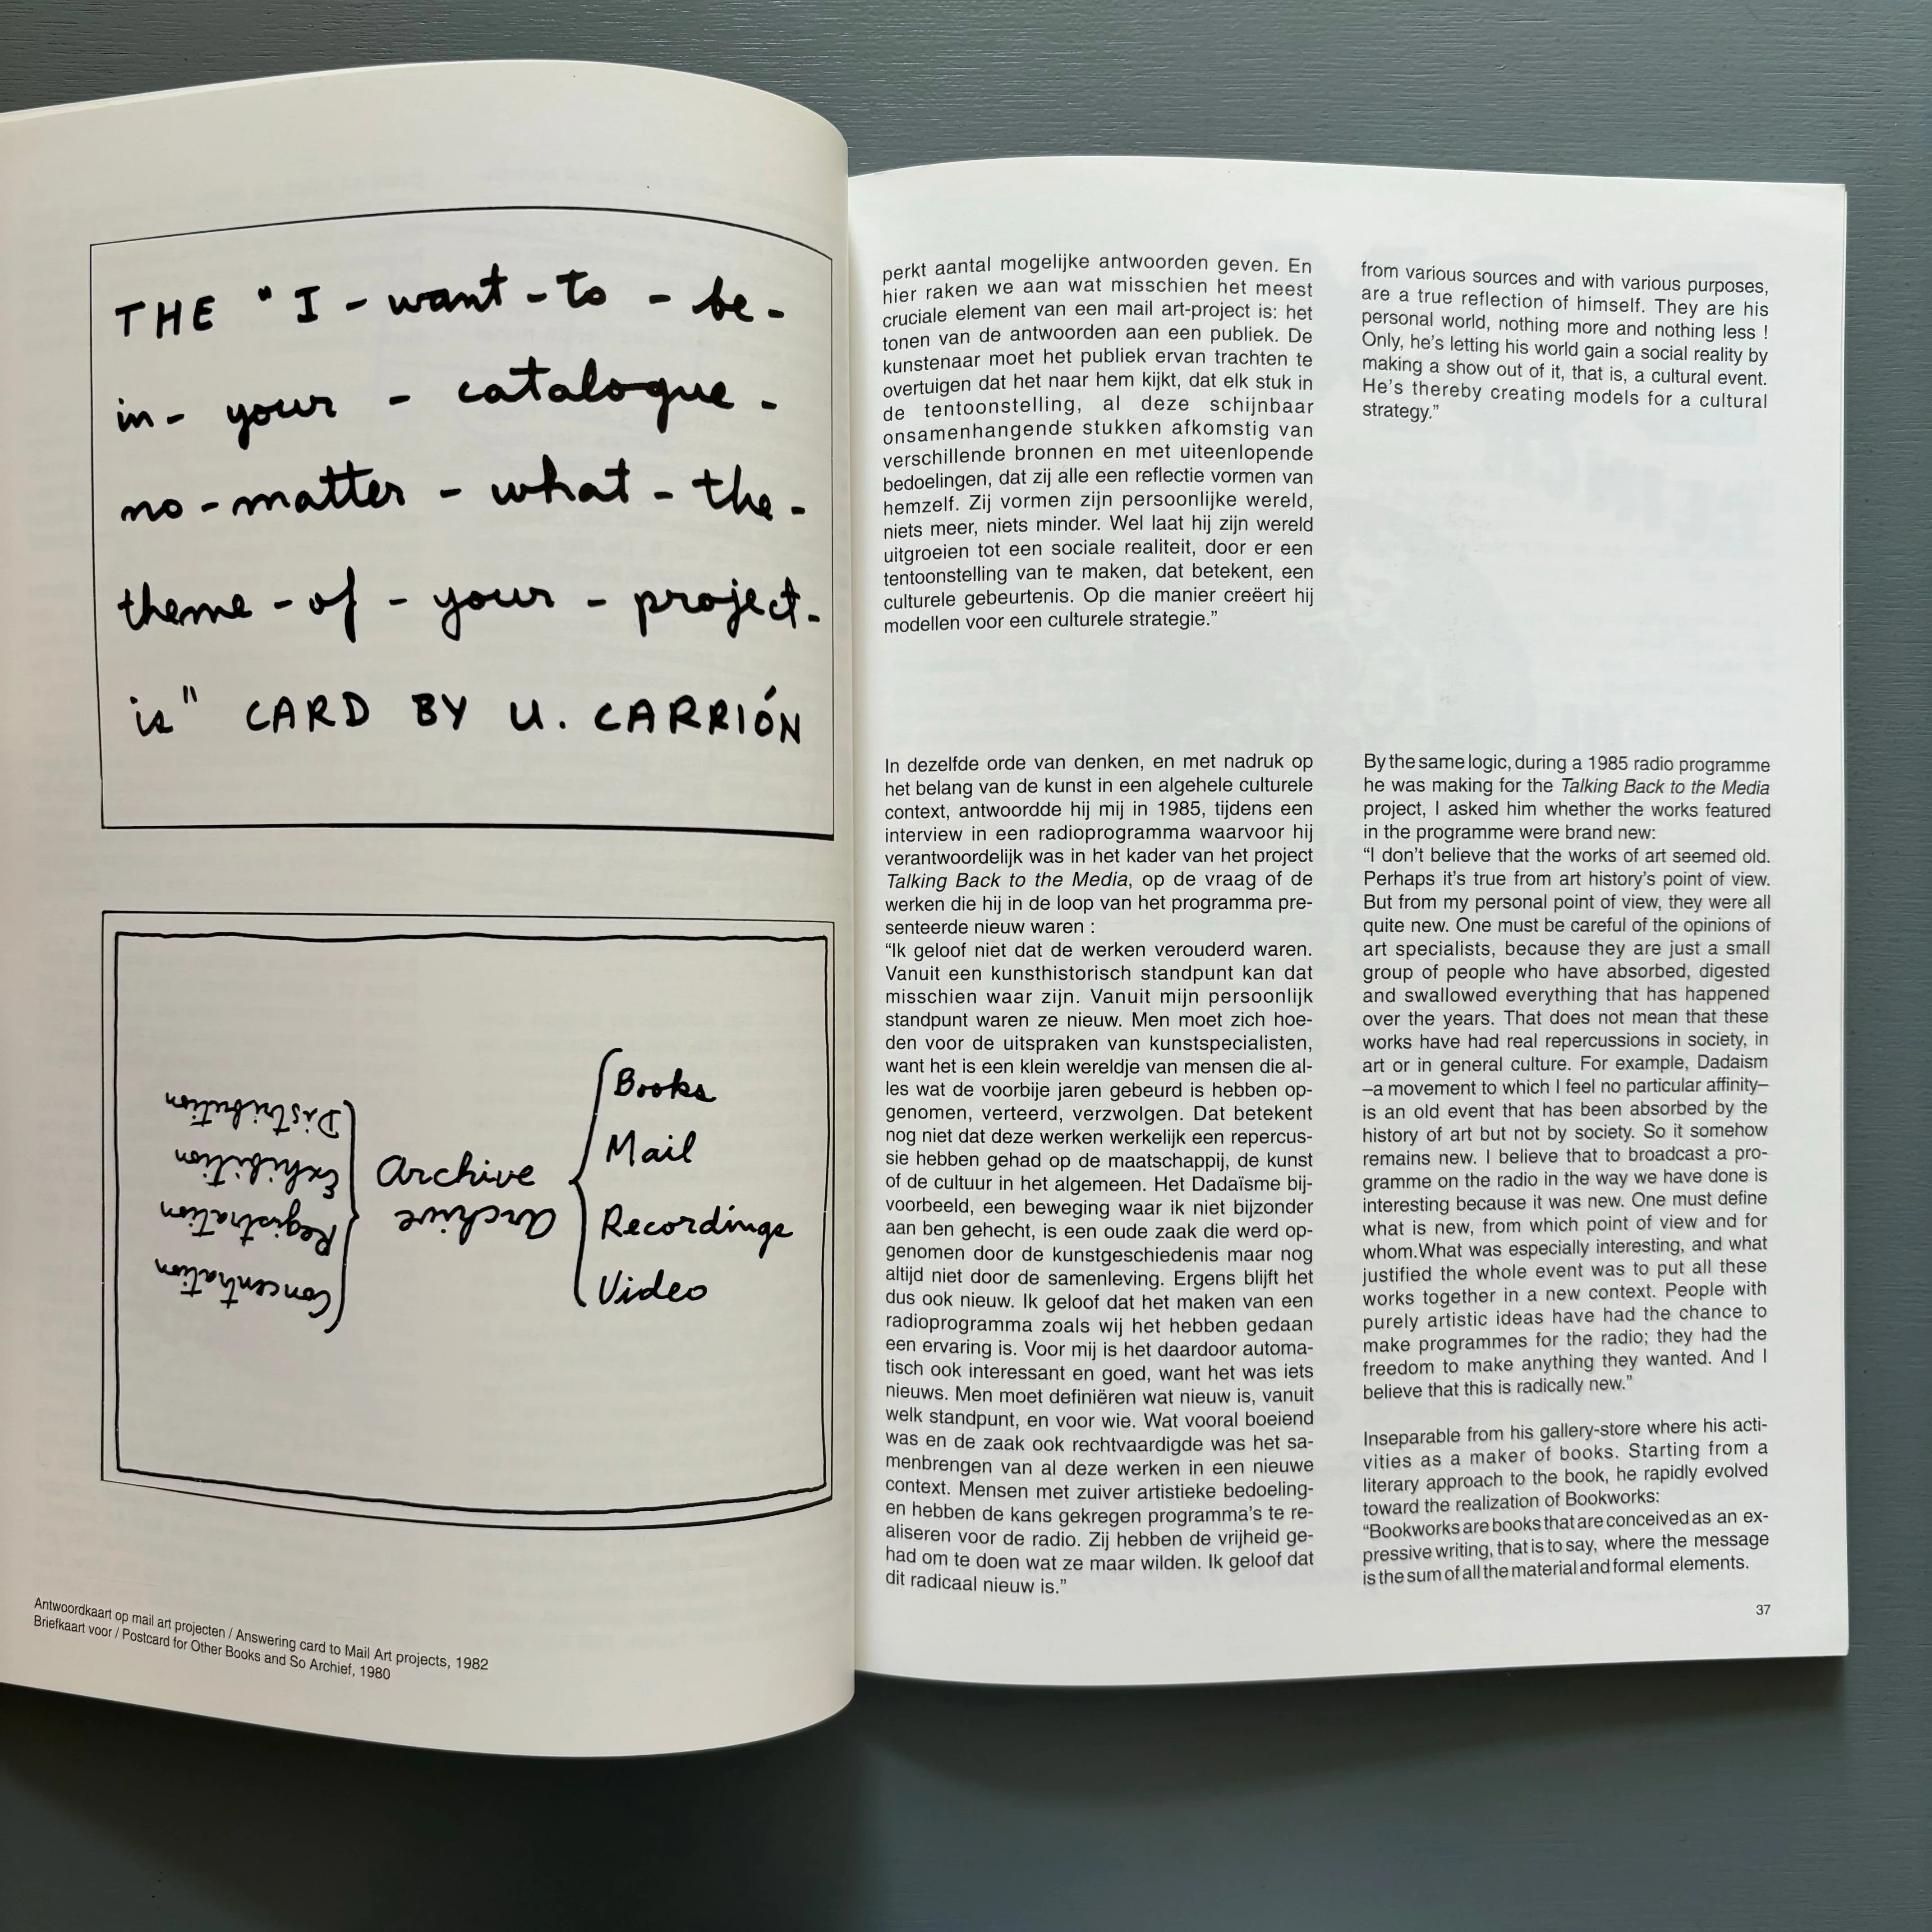 THE "I - want - to - be -
in - your - catalogue -
no - matter - what - the -
theme - of - your - project -
is" CARD BY U. CARRIÓN
Archive
Books
Mail
Recordings
Video
Archive
Concentration
Registration
Exhibition
Distribution
Antwoordkaart op mail art projecten / Answering card to Mail Art projects, 1982
Briefkaart voor / Postcard for Other Books and So Archief, 1980
perkt aantal mogelijke antwoorden geven. En
hier raken we aan wat misschien het meest
cruciale element van een mail art-project is: het
tonen van de antwoorden aan een publiek. De
kunstenaar moet het publiek ervan trachten te
overtuigen dat het naar hem kijkt, dat elk stuk in
de tentoonstelling, al deze schijnbaar
onsamenhangende stukken afkomstig van
verschillende bronnen en met uiteenlopende
bedoelingen, dat zij alle een reflectie vormen van
hemzelf. Zij vormen zijn persoonlijke wereld,
niets meer, niets minder. Wel laat hij zijn wereld
uitgroeien tot een sociale realiteit, door er een
tentoonstelling van te maken, dat betekent, een
culturele gebeurtenis. Op die manier creëert hij
modellen voor een culturele strategie.”
In dezelfde orde van denken, en met nadruk op
het belang van de kunst in een algehele culturele
context, antwoordde hij mij in 1985, tijdens een
interview in een radioprogramma waarvoor hij
verantwoordelijk was in het kader van het project
Talking Back to the Media, op de vraag of de
werken die hij in de loop van het programma pre-
senteerde nieuw waren :
“Ik geloof niet dat de werken verouderd waren.
Vanuit een kunsthistorisch standpunt kan dat
misschien waar zijn. Vanuit mijn persoonlijk
standpunt waren ze nieuw. Men moet zich hoe-
den voor de uitspraken van kunstspecialisten,
want het is een klein wereldje van mensen die al-
les wat de voorbije jaren gebeurd is hebben op-
genomen, verteerd, verzwolgen. Dat betekent
nog niet dat deze werken werkelijk een repercus-
sie hebben gehad op de maatschappij, de kunst
of de cultuur in het algemeen. Het Dadaïsme bij-
voorbeeld, een beweging waar ik niet bijzonder
aan ben gehecht, is een oude zaak die werd op-
genomen door de kunstgeschiedenis maar nog
altijd niet door de samenleving. Ergens blijft het
dus ook nieuw. Ik geloof dat het maken van een
radioprogramma zoals wij het hebben gedaan
een ervaring is. Voor mij is het daardoor automa-
tisch ook interessant en goed, want het was iets
nieuws. Men moet definiëren wat nieuw is, vanuit
welk standpunt, en voor wie. Wat vooral boeiend
was en de zaak ook rechtvaardigde was het sa-
menbrengen van al deze werken in een nieuwe
context. Mensen met zuiver artistieke bedoeling-
en hebben de kans gekregen programma’s te re-
aliseren voor de radio. Zij hebben de vrijheid ge-
had om te doen wat ze maar wilden. Ik geloof dat
dit radicaal nieuw is.”
from various sources and with various purposes,
are a true reflection of himself. They are his
personal world, nothing more and nothing less !
Only, he’s letting his world gain a social reality by
making a show out of it, that is, a cultural event.
He’s thereby creating models for a cultural
strategy.”
By the same logic, during a 1985 radio programme
he was making for the Talking Back to the Media
project, I asked him whether the works featured
in the programme were brand new:
“I don’t believe that the works of art seemed old.
Perhaps it’s true from art history’s point of view.
But from my personal point of view, they were all
quite new. One must be careful of the opinions of
art specialists, because they are just a small
group of people who have absorbed, digested
and swallowed everything that has happened
over the years. That does not mean that these
works have had real repercussions in society, in
art or in general culture. For example, Dadaism
–a movement to which I feel no particular affinity–
is an old event that has been absorbed by the
history of art but not by society. So it somehow
remains new. I believe that to broadcast a pro-
gramme on the radio in the way we have done is
interesting because it was new. One must define
what is new, from which point of view and for
whom.What was especially interesting, and what
justified the whole event was to put all these
works together in a new context. People with
purely artistic ideas have had the chance to
make programmes for the radio; they had the
freedom to make anything they wanted. And I
believe that this is radically new.”
Inseparable from his gallery-store where his acti-
vities as a maker of books. Starting from a
literary approach to the book, he rapidly evolved
toward the realization of Bookworks:
“Bookworks are books that are conceived as an ex-
pressive writing, that is to say, where the message
is the sum of all the material and formal elements.
37